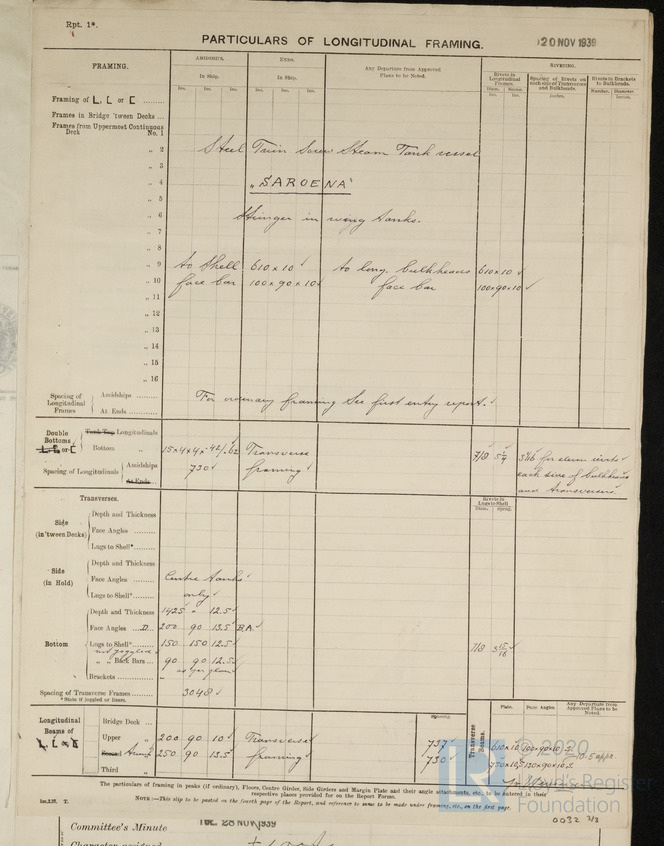 Rpt. 1*.
PARTICULARS OF LONGITUDINAL FRAMING.
20 NOV 1939
FRAMING.
AMIDSHIPS.
ENDS.
Any Departure from Approved Plans to be Noted.
RIVETING.
In Ship.
In Ship.
Rivets in Longitudinal Frames.
Spacing of Rivets on each side of Transverses and Bulkheads.
Rivets in Brackets to Bulkheads.
Framing of L, L or C
Frames in Bridge 'tween Decks
Frames from Uppermost Continuous Deck No. 1
„ 2 Steel Twin Screw Steam Tank vessel
„ 3
„ 4 „SAROENA"
„ 5
„ 6 Stringer in wing tanks.
„ 7
„ 8
„ 9 to Shell 610 x 10 to long. bulkheads 610 x 10
„ 10 face bar 100 x 90 x 10 face bar 100x90x10
„ 11
„ 12
„ 13
„ 14
„ 15
„ 16
Spacing of Longitudinal Frames
Amidships For ordinary framing See first entry report.
At Ends
Double Bottoms L, L or C
Tank Top Longitudinals
Bottom „ 15x4x4x .42/.62 Transverse 7/8
Spacing of Longitudinals
Amidships 730 framing each side of bulkheads
At Ends and transverses
Transverses.
Rivets in Lugs to Shell
Side (in 'tween Decks)
Depth and Thickness
Face Angles
Lugs to Shell*
Side (in Hold)
Depth and Thickness
Face Angles Centre tanks
Lugs to Shell* only
Bottom
Depth and Thickness 1425 „ 12.5
Face Angles D. 200 90 13.5 B.A.
Lugs to Shell* 150 150 12.5 7/8 3 15/16
not joggled
„ „ Back Bars 90 90 12.5
Brackets „ as per plan
Spacing of Transverse Frames 3048
*State if joggled or liners.
Longitudinal Beams of L, L or C
Spacing.
Transverse Beams.
Plate.
Face Angles.
Any Departure from Approved Plans to be Noted.
Bridge Deck
Upper „ 200 90 10 Transverse 737 610x10 100x90x10
Second „ 250 90 13.5 framing 730 10.5 appr.
Third „
The particulars of framing in peaks (if ordinary), Floors, Centre Girder, Side Girders and Margin Plate and their angle attachments, etc., to be entered in their respective places provided for on the Report Forms.
NOTE:—This slip to be pasted on the fourth page of the Report, and reference to same to be made under framing, etc., on the first page.
© 2020
Lloyd's Register
Foundation
0032 2/3
Committee's Minute
TUE. 28 NOV 1939
Character assigned